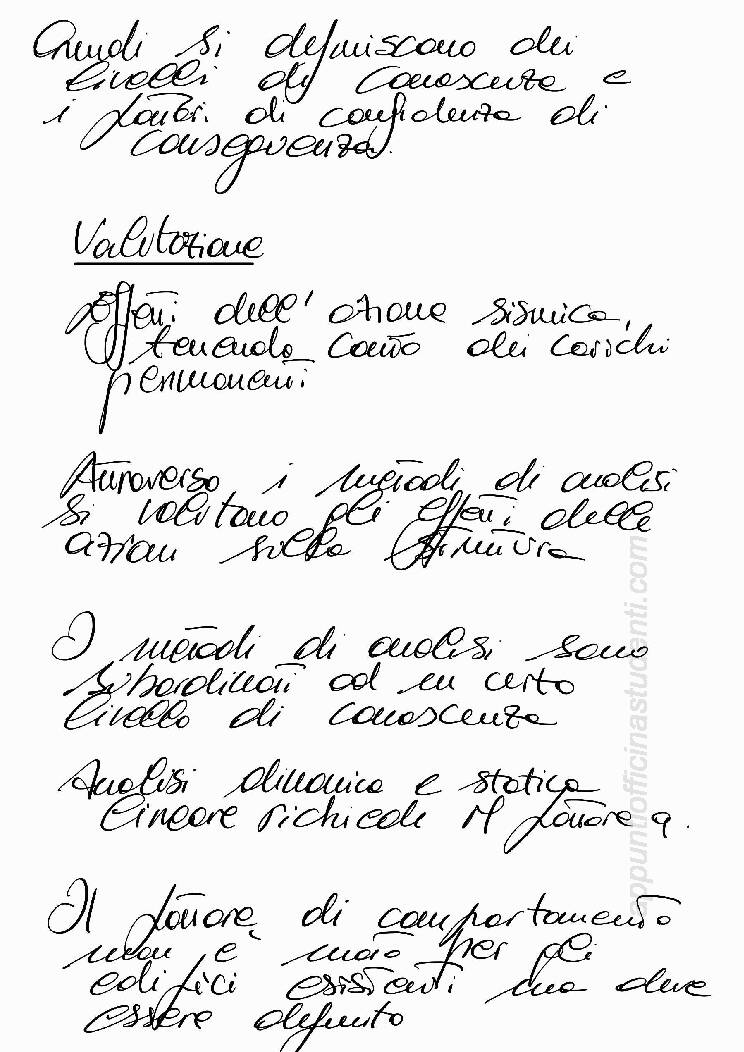 Quindi si definiscono dei
livelli di conoscenza e
i fattori di confidenza di
conseguenza.
Valutazione
Effetti dell'azione sismica,
tenendo conto dei carichi
permanenti
Attraverso i metodi di analisi
si valutano gli effetti delle
azioni sulla struttura
I metodi di analisi sono
subordinati ad un certo
livello di conoscenza
Analisi dinamica e statica
lineare richiede il fattore q.
Il fattore di comportamento
non è noto per gli
edifici esistenti ma deve
essere definito
appuntiofficinastudenti.com